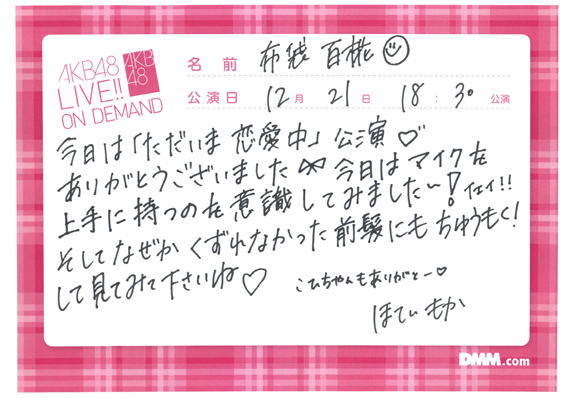 AKB48
LIVE!!
ON DEMAND
AKB
48
名前 布袋 百椛
公演日 12月21日 18:30 公演
今日は「ただいま 恋愛中」公演♡
ありがとうございました 今日は マイクを
上手に持つのを意識してみました〜! イェイ!!
そしてなぜか くずれなかった 前髪にも ちゅうもく!
して見てみて下さいね♡
こひちゃんもありがとー♡
ほてい もか
DMM.com